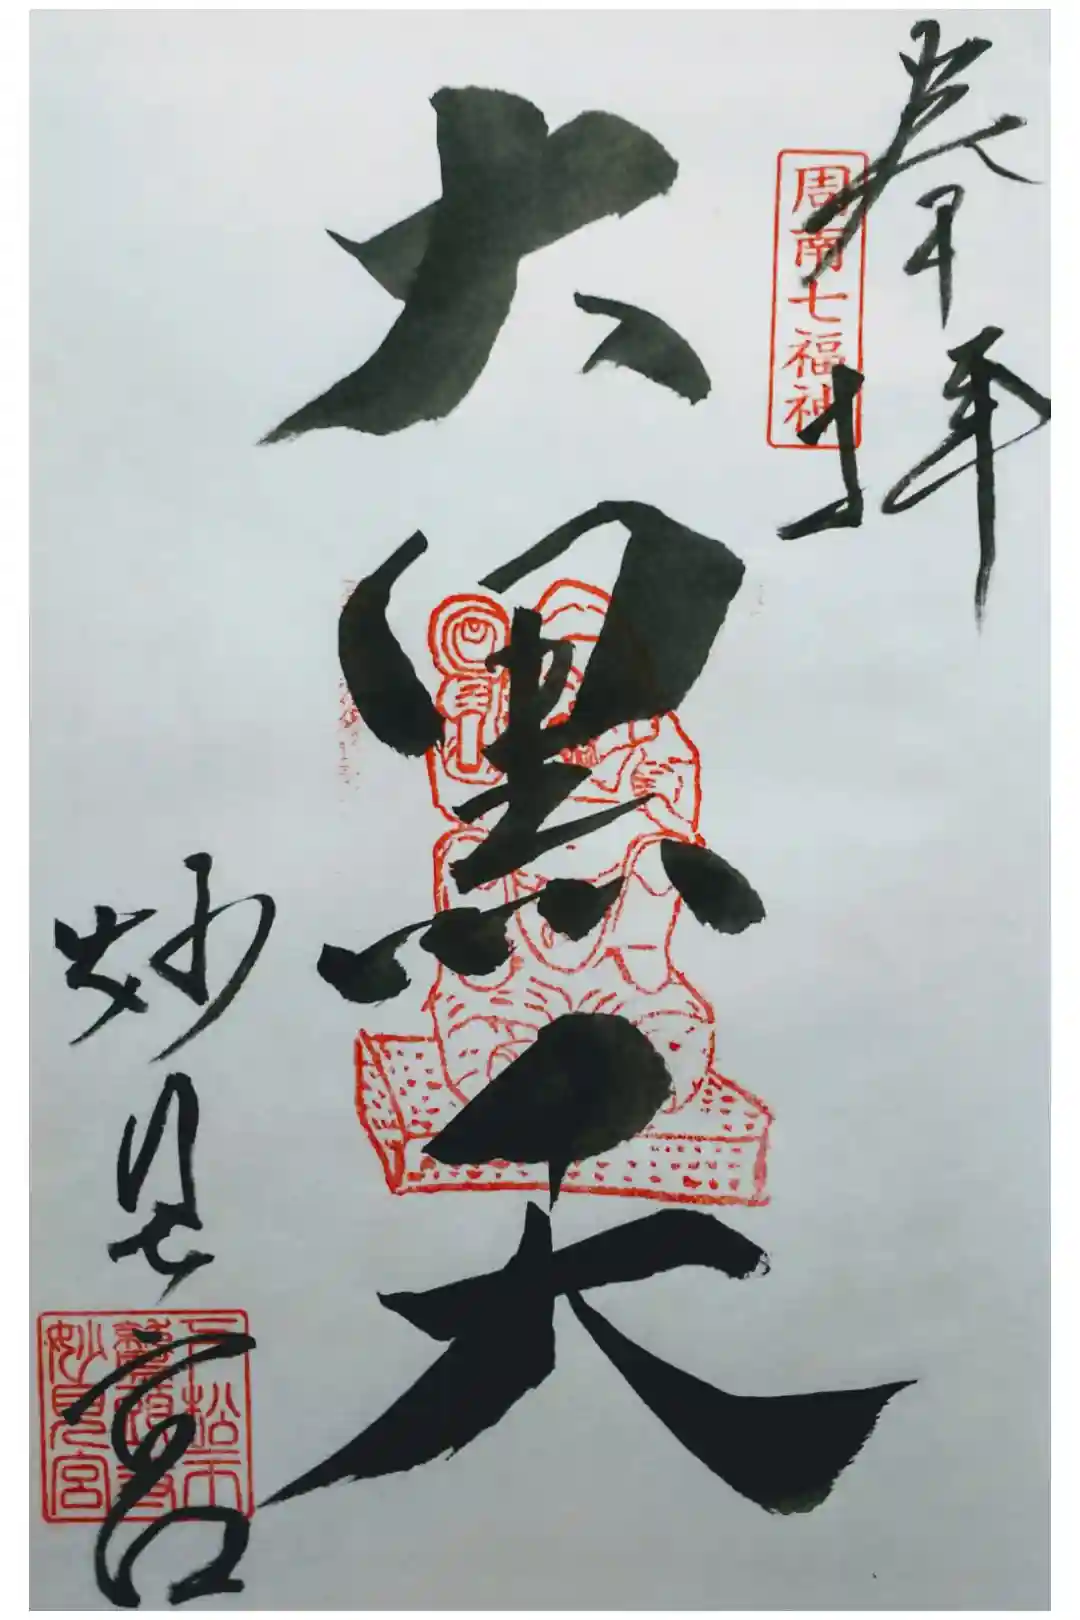 奉拝
周南七福神
大黒天
妙見宮
下松市
鷲頭寺
妙見宮